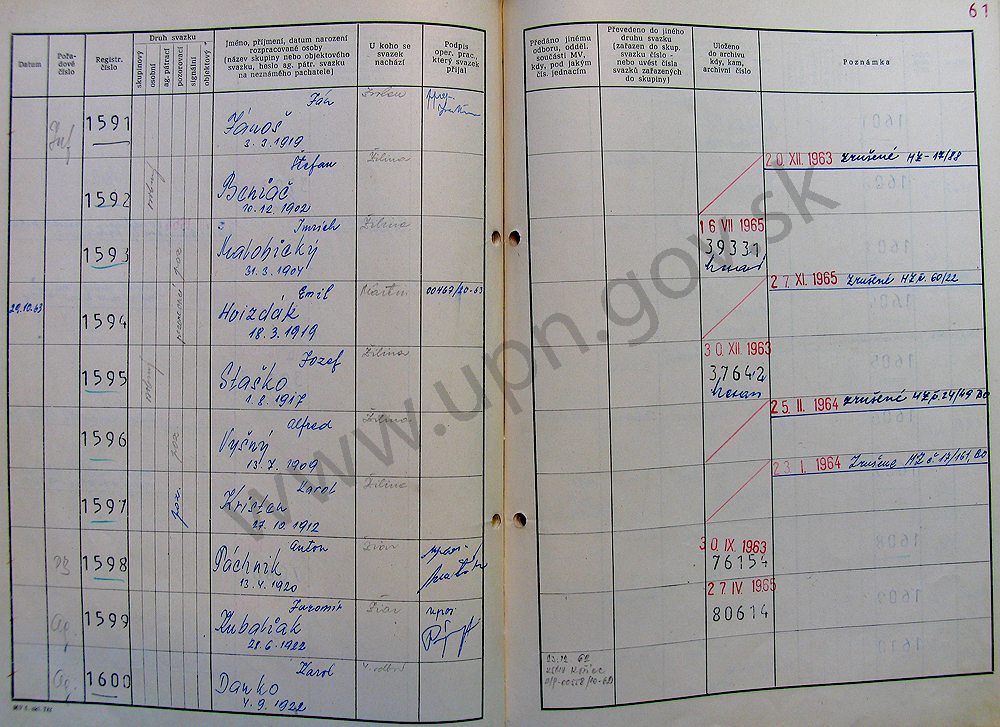 61
Datum
Pořadové číslo
Registr. číslo
Druh svazku
skupinový
osobní
ag. pátrací
pozorovací
signální
objektový
Jméno, příjmení, datum narození
rozpracované osoby
(název skupiny nebo objektového
svazku, heslo ag. pátr. svazku
na neznámého pachatele)
U koho se
svazek
nachází
Podpis
oper. prac.,
který svazek
přijal
Předáno jinému
odboru, odděl.
součásti MV,
kdy, pod jakým
čís. jednacím
Převedeno do jiného
druhu svazku
(zařazen do skup.
svazku číslo -
nebo uvést čísla
svazků zařazených
do skupiny)
Uloženo
do archivu
kdy, kam,
archivní číslo
Poznámka
1591
Ján
Jánoš
3. 3. 1919
1592
Štefan
Beniač
10. 12. 1902
Žilina
20. XII. 1963 zrušené HZ-17/88
1593
Imrich
31. 3. 1904
Žilina
16 VII 1965
39331
29.10.63
1594
Emil
Hvizdák
18. 3. 1919
Martin
00467/20-63
27. XI. 1965 Zrušené HZ č. 60/22
1595
Jozef
Staško
1. 8. 1917
Žilina
30. XII. 1963
37642
1596
poz
Alfred
Vyšný
13. 7. 1909
Žilina
25. II. 1964 zrušené HZ č. 24/49 BO
1597
poz.
Karol
Kristan
27. 10. 1912
Žilina
23. I. 1964 Zrušené HZ č. 17/161, BO
1598
Anton
Páchnik
13. 4. 1920
30. IX. 1963
76154
Ag.
1599
Jaromír
Kubaliak
28. 6. 1922
27. IV. 1965
80614
Ag.
1600
Karol
Danko
4. 9. 1922
23. 12. 62
www.upn.gov.sk